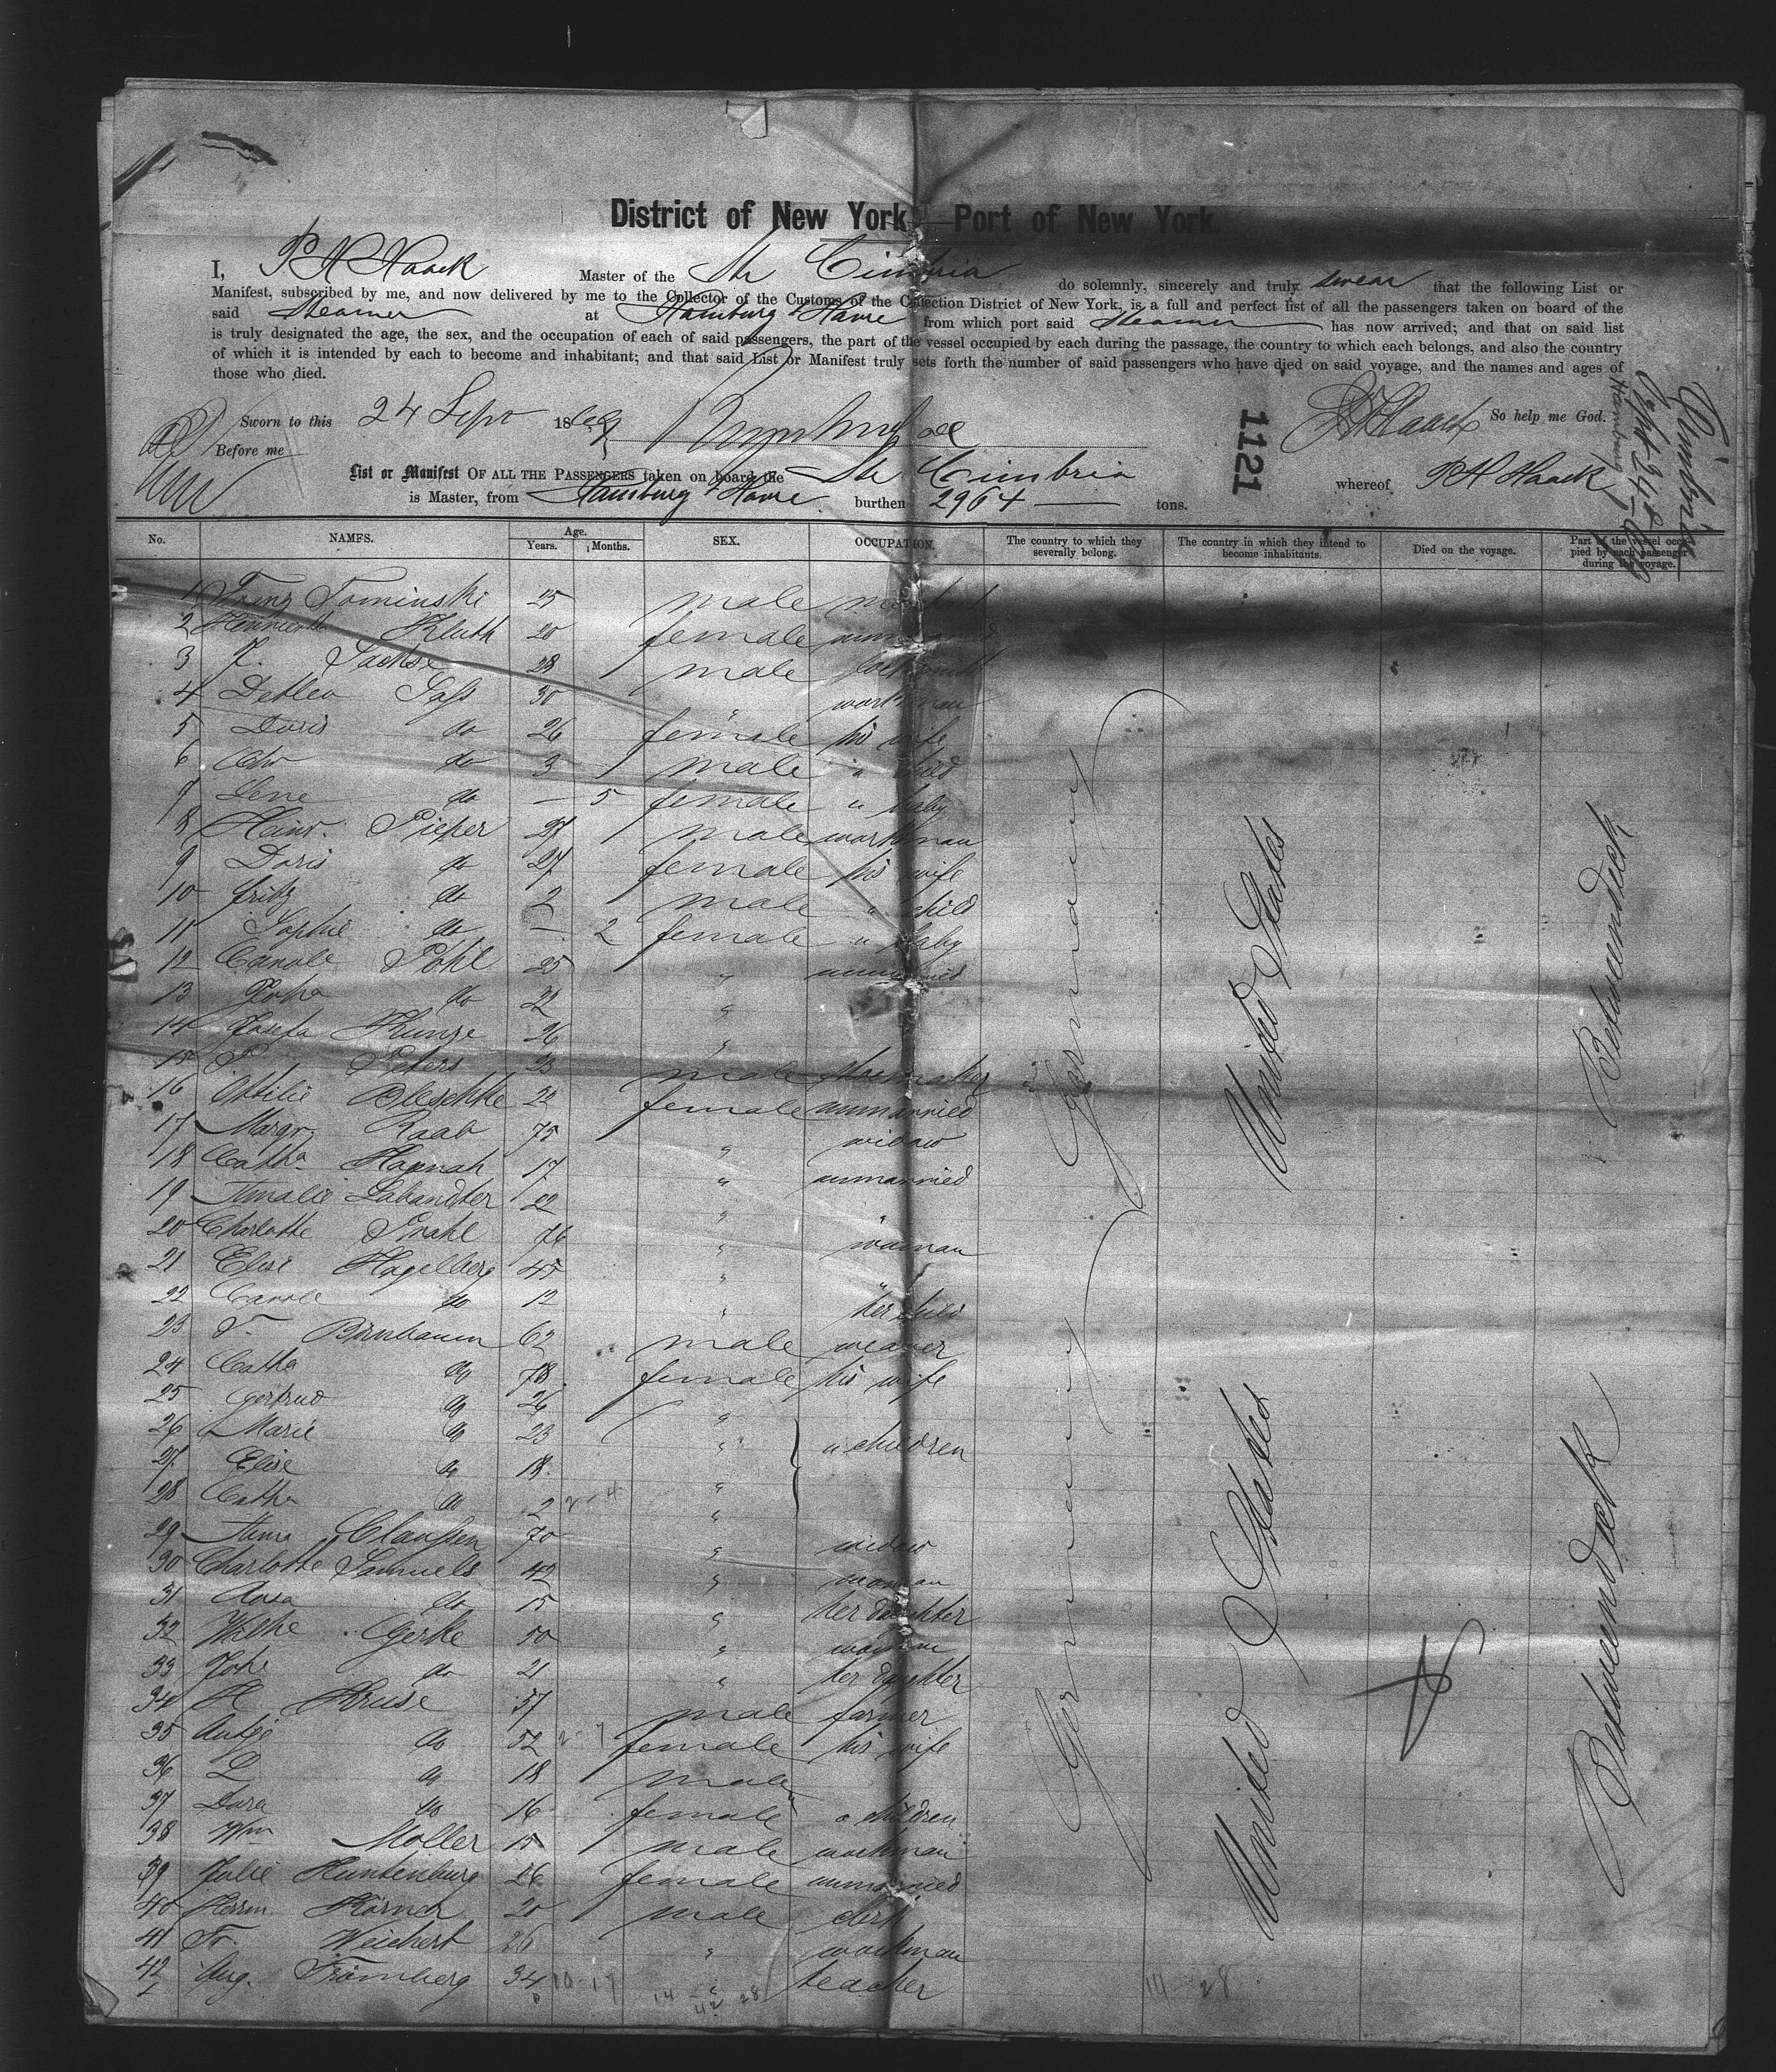 District of New York Port of New York.
I, P H Haack Master of the Str Cimbria do solemnly, sincerely and truly swear that the following List or
Manifest, subscribed by me, and now delivered by me to the Collector of the Customs of the Collection District of New York, is a full and perfect list of all the passengers taken on board of the
said Steamer at Hamburg & Havre from which port said Steamer has now arrived; and that on said list
is truly designated the age, the sex, and the occupation of each of said passengers, the part of the vessel occupied by each during the passage, the country to which each belongs, and also the country
of which it is intended by each to become and inhabitant; and that said List or Manifest truly sets forth the number of said passengers who have died on said voyage, and the names and ages of
those who died.
Sworn to this 24 Sept 1869
So help me God.
Before me
P H Haack
1121
Cimbria
Sept 24
Hamburg
List or Manifest OF ALL THE PASSENGERS taken on board the Str Cimbria whereof P H Haack
is Master, from Hamburg & Havre burthen 2964 tons.
No. NAMES. Age. Years. Months. SEX. OCCUPATION. The country to which they severally belong. The country in which they intend to become inhabitants. Died on the voyage. Part of the vessel occupied by each passenger during the voyage.
1 Tominski 25 male
2 Kluth 20 female
3 F. Sachse 28 male
4 Detlev Gass 30 " workman
5 Doris do 26 female his wife
6 do 3 male " child
7 Lene do — 5 female " baby
8 Heinr. Pieper 27 male workman
9 Doris do 27 female his wife
10 Fritz do 2 male " child
11 Sophie do — 2 female " baby
12 Carole Pohl 25 " unmarried
13 Joha do 22 "
14 Josefa Kunze 26 "
15 P. Peters 23 male shoemaker
16 Ottilie Bleschke 22 female unmarried
17 Margr. Raab 75 " widow
18 Catha Hannah 17 " unmarried
19 Amalie Labandter 22 " "
20 Charlotte Prahl 76 " woman
21 Elise Hagelberg 45 " "
22 Carole do 12 " her child
23 F. Birnbaum 62 male weaver
24 Catha do 78 female his wife
25 Gertrud do 26 "
26 Marie do 23 " " children
27 Elise do 18 "
28 Catha do 2 "
29 Anna Claussen 70 " widow
30 Charlotte Samuels 42 " woman
31 Rosa do 15 " her daughter
32 Wilhe Gerke 50 " woman
33 Joha do 21 " her daughter
34 H Kruse 57 male farmer
35 Antje do 52 female his wife
36 L do 18 male
37 Dora do 16 female " children
38 Wm Moller 15 male workman
39 Julie Huntenburg 26 female unmarried
40 Herrm. Körner 20 male clerk
41 Fr. Weichert 26 " workman
42 Aug. Frömberg 34 " teacher
Germany
United States
Betweendeck
Germany
United States
Betweendeck
10-17
14
42 28
14 - 28